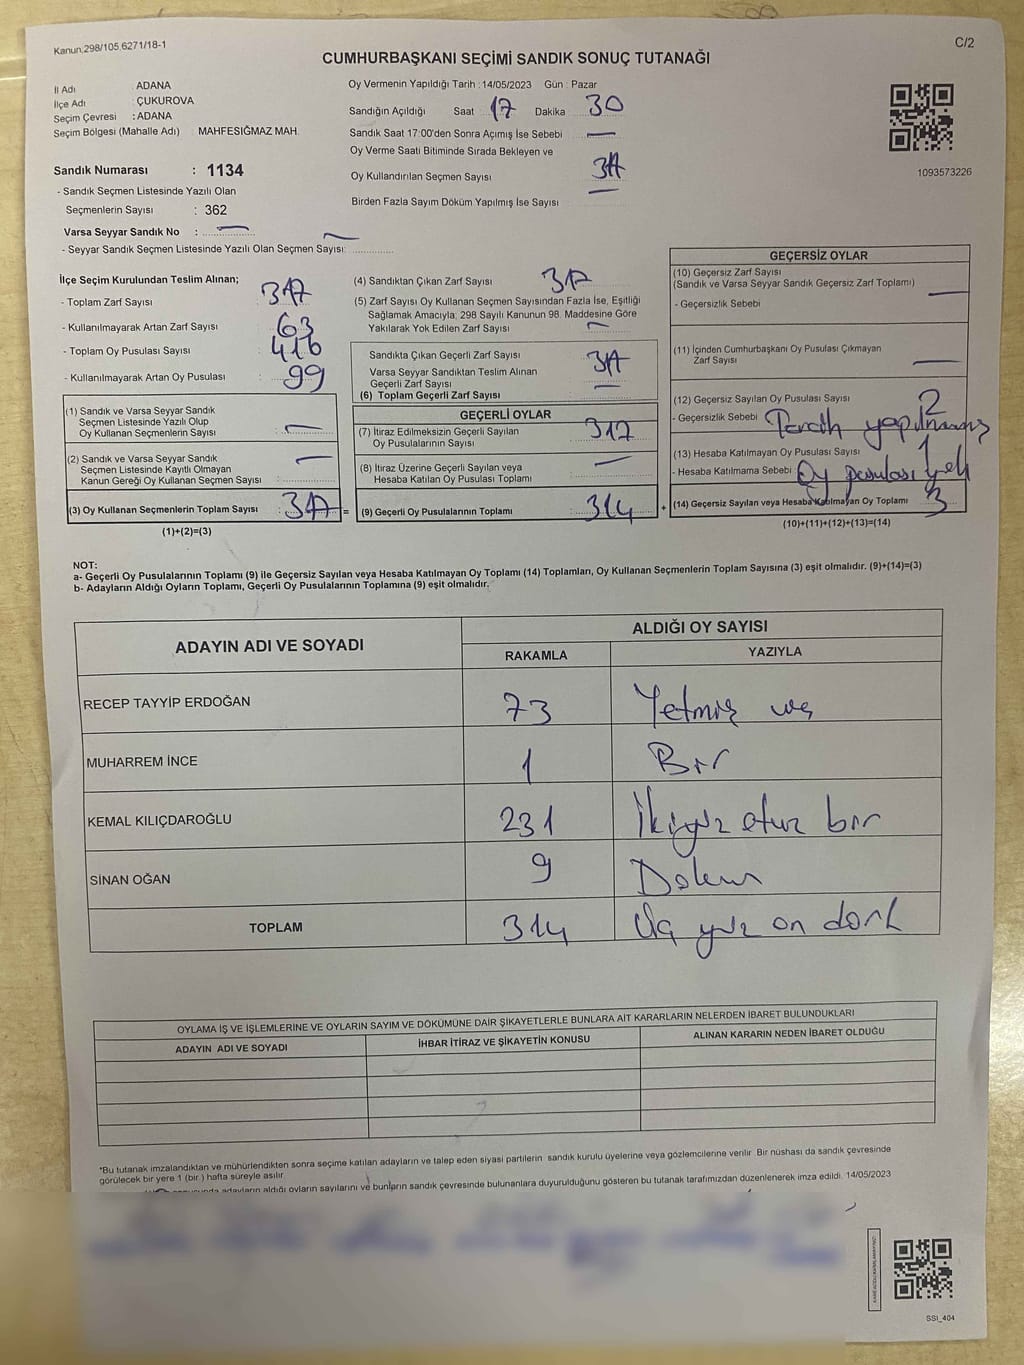 Kanun.298/105,6271/18-1
C/2
CUMHURBAŞKANI SEÇİMİ SANDIK SONUÇ TUTANAĞI
İl Adı ADANA
İlçe Adı : ÇUKUROVA
Seçim Çevresi : ADANA
Seçim Bölgesi (Mahalle Adı) MAHFESIĞMAZ MAH.
Sandık Numarası : 1134
- Sandık Seçmen Listesinde Yazılı Olan
Seçmenlerin Sayısı : 362
Varsa Seyyar Sandık No : —
- Seyyar Sandık Seçmen Listesinde Yazılı Olan Seçmen Sayısı: —
Oy Vermenin Yapıldığı Tarih : 14/05/2023 Gün : Pazar
Sandığın Açıldığı Saat 17 Dakika 30
Sandık Saat 17:00'den Sonra Açımış İse Sebebi —
Oy Verme Saati Bitiminde Sırada Bekleyen ve
Oy Kullandırılan Seçmen Sayısı
Birden Fazla Sayım Döküm Yapılmış İse Sayısı —
1093573226
İlçe Seçim Kurulundan Teslim Alınan;
- Toplam Zarf Sayısı
- Kullanılmayarak Artan Zarf Sayısı : 63
- Toplam Oy Pusulası Sayısı : 416
- Kullanılmayarak Artan Oy Pusulası : 99
(1) Sandık ve Varsa Seyyar Sandık
Seçmen Listesinde Yazılı Olup
Oy Kullanan Seçmenlerin Sayısı : —
(2) Sandık ve Varsa Seyyar Sandık
Seçmen Listesinde Kayıtlı Olmayan
Kanun Gereği Oy Kullanan Seçmen Sayısı : —
(3) Oy Kullanan Seçmenlerin Toplam Sayısı : 317 =
(1)+(2)=(3)
(4) Sandıktan Çıkan Zarf Sayısı 317
(5) Zarf Sayısı Oy Kullanan Seçmen Sayısından Fazla İse, Eşitliği
Sağlamak Amacıyla, 298 Sayılı Kanunun 98. Maddesine Göre
Yakılarak Yok Edilen Zarf Sayısı —
Sandıkta Çıkan Geçerli Zarf Sayısı 317
Varsa Seyyar Sandıktan Teslim Alınan
Geçerli Zarf Sayısı —
(6) Toplam Geçerli Zarf Sayısı
GEÇERLİ OYLAR
(7) İtiraz Edilmeksizin Geçerli Sayılan
Oy Pusulalarının Sayısı
(8) İtiraz Üzerine Geçerli Sayılan veya
Hesaba Katılan Oy Pusulası Toplamı —
(9) Geçerli Oy Pusulalarının Toplamı : 314 +
GEÇERSİZ OYLAR
(10) Geçersiz Zarf Sayısı
(Sandık ve Varsa Seyyar Sandık Geçersiz Zarf Toplamı)
- Geçersizlik Sebebi —
(11) İçinden Cumhurbaşkanı Oy Pusulası Çıkmayan
Zarf Sayısı —
(12) Geçersiz Sayılan Oy Pusulası Sayısı 2
- Geçersizlik Sebebi Tercih yapılmamış
(13) Hesaba Katılmayan Oy Pusulası Sayısı 1
- Hesaba Katılmama Sebebi : Oy pusulası yok
(14) Geçersiz Sayılan veya Hesaba Katılmayan Oy Toplamı 3
(10)+(11)+(12)+(13)=(14)
NOT:
a- Geçerli Oy Pusulalarının Toplamı (9) ile Geçersiz Sayılan veya Hesaba Katılmayan Oy Toplamı (14) Toplamları, Oy Kullanan Seçmenlerin Toplam Sayısına (3) eşit olmalıdır. (9)+(14)=(3)
b- Adayların Aldığı Oyların Toplamı, Geçerli Oy Pusulalarının Toplamına (9) eşit olmalıdır.
ADAYIN ADI VE SOYADI ALDIĞI OY SAYISI
RAKAMLA YAZIYLA
RECEP TAYYİP ERDOĞAN 73 Yetmiş üç
MUHARREM İNCE 1 Bir
KEMAL KILIÇDAROĞLU 231 İkiyüz otuz bir
SİNAN OĞAN 9 Dokuz
TOPLAM 314 Üç yüz on dört
OYLAMA İŞ VE İŞLEMLERİNE VE OYLARIN SAYIM VE DÖKÜMÜNE DAİR ŞİKAYETLERLE BUNLARA AİT KARARLARIN NELERDEN İBARET BULUNDUKLARI
ADAYIN ADI VE SOYADI İHBAR İTİRAZ VE ŞİKAYETİN KONUSU ALINAN KARARIN NEDEN İBARET OLDUĞU
*Bu tutanak imzalandıktan ve mühürlendikten sonra seçime katılan adayların ve talep eden siyasi partilerin sandık kurulu üyelerine veya gözlemcilerine verilir. Bir nüshası da sandık çevresinde
görülecek bir yere 1 (bir ) hafta süreyle asılır.
adayların aldığı oyların sayılarını ve bunların sandık çevresinde bulunanlara duyurulduğunu gösteren bu tutanak tarafımızdan düzenlenerek imza edildi. 14/05/2023
SSI_404